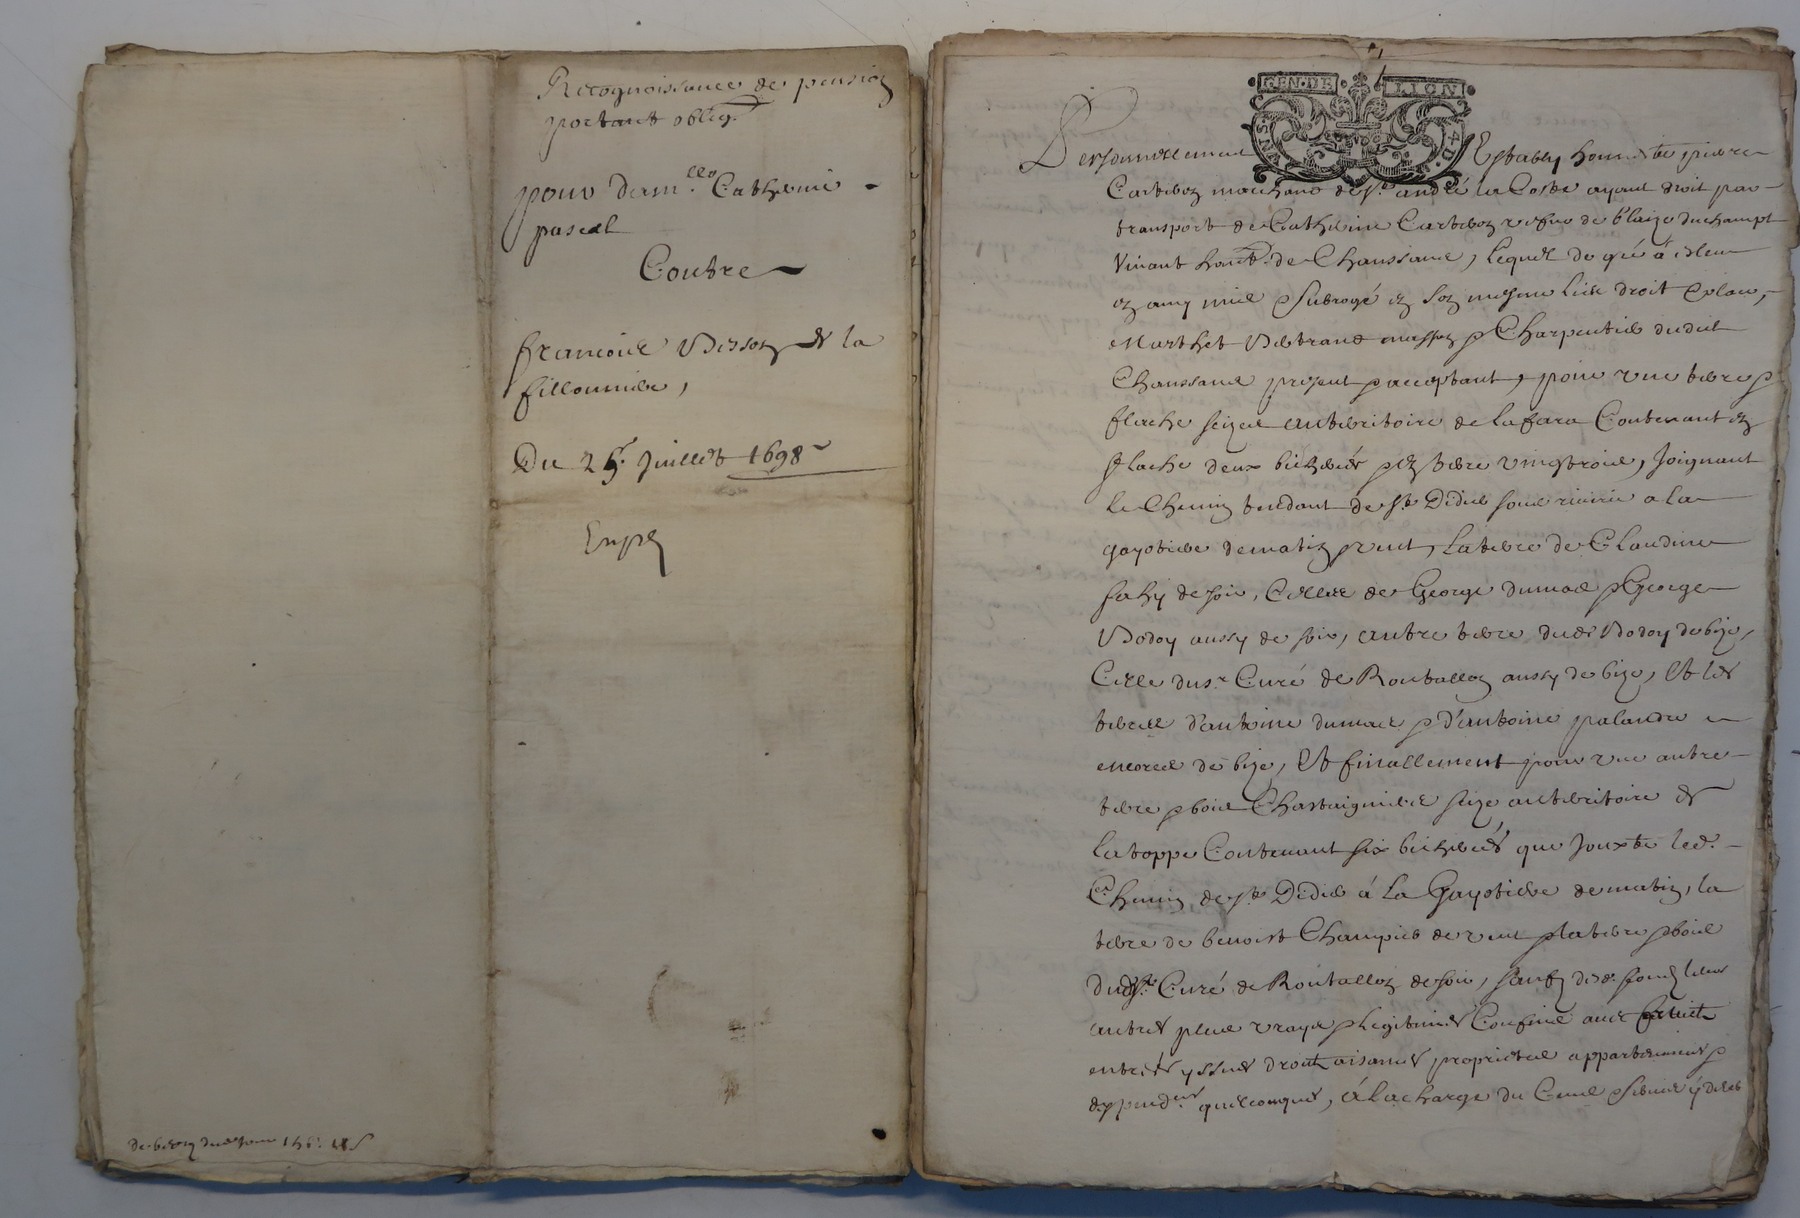 Recognoissance de pension
portant oblig.on
pour dam.lle Catherine
pascal
Contre
francois Besson de la
fillonniere,
Du 25.e Juillet 1698
Exped
GEN·DE LION
Personnellement Estably honneste pierre
marchand de St. andré la Coste ayant droit par
transport de Catherine vefve de blaize duchampt
vivant habt. de Chaussane, lequel de gré à
et subrogé en son mesme lieu droit et place,
Bertrand masson et Charpentier dudit
Chaussane present et acceptant, pour une terre et
fleche seize au territoire de la fara Contenant en
fleche deux bicherées et en terre vingt trois, Joignant
le Chemin tendant de St. Didier sous riverie a la
gayotiere de matin et vent, la terre de Claudine
de soir, Celles de George dumas et George
Bodoy aussy de soir, autre terre dudt Bodoy de bize,
Celle du sr Curé de Rontallon aussy de bize, Et les
terres d'antoine dumas et d'antoine palandre
encores de bize, Et finallement pour une autre
terre et bois Chastaignier seize au territoire de
la toppe Contenant six bicherées que Jouxte led.
Chemin de St. Didier á La Gayotiere de matin, la
terre de benoist Champier de vent et la terre et bois
dud. Sr. Curé de Rontallon de soir, sauf desd. fonds leurs
autres plus vrays et legitimes Confins avec
entrées yssues droits aisances proprietes appartenances et
deppend.ces quelconques, á la charge du Cens et servis